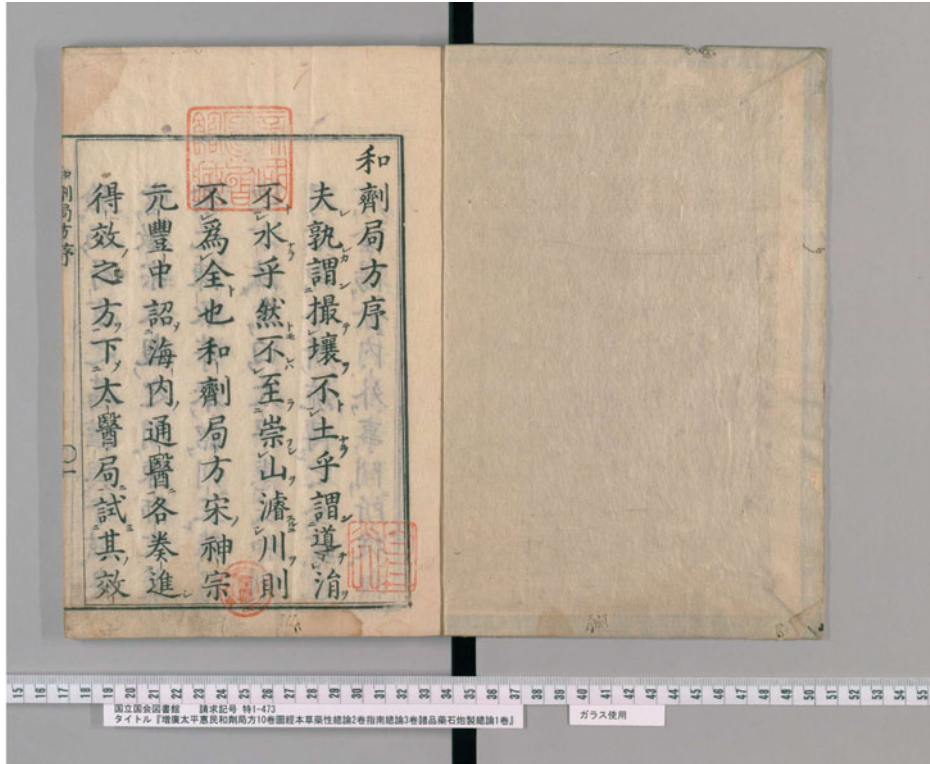 和劑局方序
夫孰謂撮壤不土乎謂導涓
不水乎然不至崇山濬川則
不爲全也和劑局方宋神宗
元豐中詔海內通醫各奏進
得效之方下太醫局試其效
和劑局方序
15 16 17 18 19 20 21 22 23 24 25 26 27 28 29 30 31 32 33 34 35 36 37 38 39 40 41 42 43 44 45 46 47 48 49 50 51 52 53 54 55
国立国会図書館 請求記号 特1-473
タイトル『増廣太平惠民和劑局方10巻圖經本草藥性總論2巻指南總論3巻諸品藥石炮製總論1巻』
ガラス使用